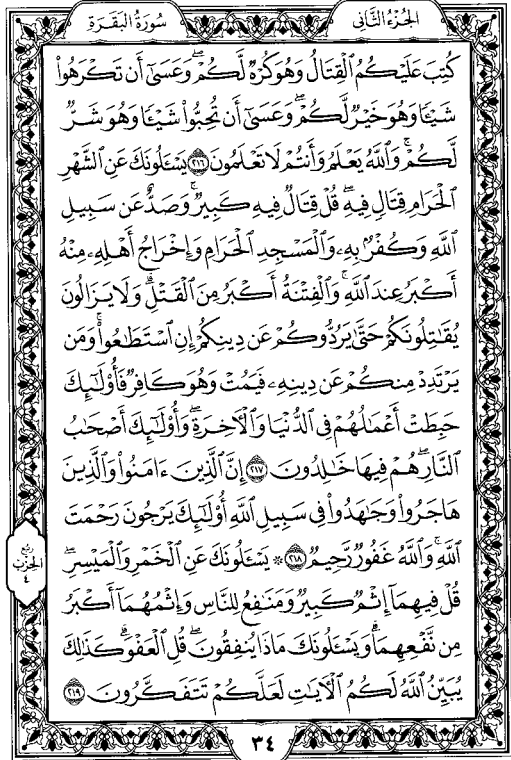 الجزء الثاني
سورة البقرة
كُتِبَ عَلَيْكُمُ ٱلْقِتَالُ وَهُوَ كُرْهٌ لَّكُمْ ۖ وَعَسَىٰٓ أَن تَكْرَهُوا۟
شَيْـًٔا وَهُوَ خَيْرٌ لَّكُمْ ۖ وَعَسَىٰٓ أَن تُحِبُّوا۟ شَيْـًٔا وَهُوَ شَرٌّ
لَّكُمْ ۗ وَٱللَّهُ يَعْلَمُ وَأَنتُمْ لَا تَعْلَمُونَ ٢١٦ يَسْـَٔلُونَكَ عَنِ ٱلشَّهْرِ
ٱلْحَرَامِ قِتَالٍ فِيهِ ۖ قُلْ قِتَالٌ فِيهِ كَبِيرٌ ۖ وَصَدٌّ عَن سَبِيلِ
ٱللَّهِ وَكُفْرٌۢ بِهِۦ وَٱلْمَسْجِدِ ٱلْحَرَامِ وَإِخْرَاجُ أَهْلِهِۦ مِنْهُ
أَكْبَرُ عِندَ ٱللَّهِ ۚ وَٱلْفِتْنَةُ أَكْبَرُ مِنَ ٱلْقَتْلِ ۗ وَلَا يَزَالُونَ
يُقَـٰتِلُونَكُمْ حَتَّىٰ يَرُدُّوكُمْ عَن دِينِكُمْ إِنِ ٱسْتَطَـٰعُوا۟ ۚ وَمَن
يَرْتَدِدْ مِنكُمْ عَن دِينِهِۦ فَيَمُتْ وَهُوَ كَافِرٌ فَأُو۟لَـٰٓئِكَ
حَبِطَتْ أَعْمَـٰلُهُمْ فِى ٱلدُّنْيَا وَٱلْـَٔاخِرَةِ ۖ وَأُو۟لَـٰٓئِكَ أَصْحَـٰبُ
ٱلنَّارِ ۖ هُمْ فِيهَا خَـٰلِدُونَ ٢١٧ إِنَّ ٱلَّذِينَ ءَامَنُوا۟ وَٱلَّذِينَ
هَاجَرُوا۟ وَجَـٰهَدُوا۟ فِى سَبِيلِ ٱللَّهِ أُو۟لَـٰٓئِكَ يَرْجُونَ رَحْمَتَ
ٱللَّهِ ۚ وَٱللَّهُ غَفُورٌ رَّحِيمٌ ٢١٨ ۞ يَسْـَٔلُونَكَ عَنِ ٱلْخَمْرِ وَٱلْمَيْسِرِ ۖ
قُلْ فِيهِمَآ إِثْمٌ كَبِيرٌ وَمَنَـٰفِعُ لِلنَّاسِ وَإِثْمُهُمَآ أَكْبَرُ
مِن نَّفْعِهِمَا ۗ وَيَسْـَٔلُونَكَ مَاذَا يُنفِقُونَ ۖ قُلِ ٱلْعَفْوَ ۗ كَذَٰلِكَ
يُبَيِّنُ ٱللَّهُ لَكُمُ ٱلْـَٔايَـٰتِ لَعَلَّكُمْ تَتَفَكَّرُونَ ٢١٩
ربع
الحزب
٤
٣٤